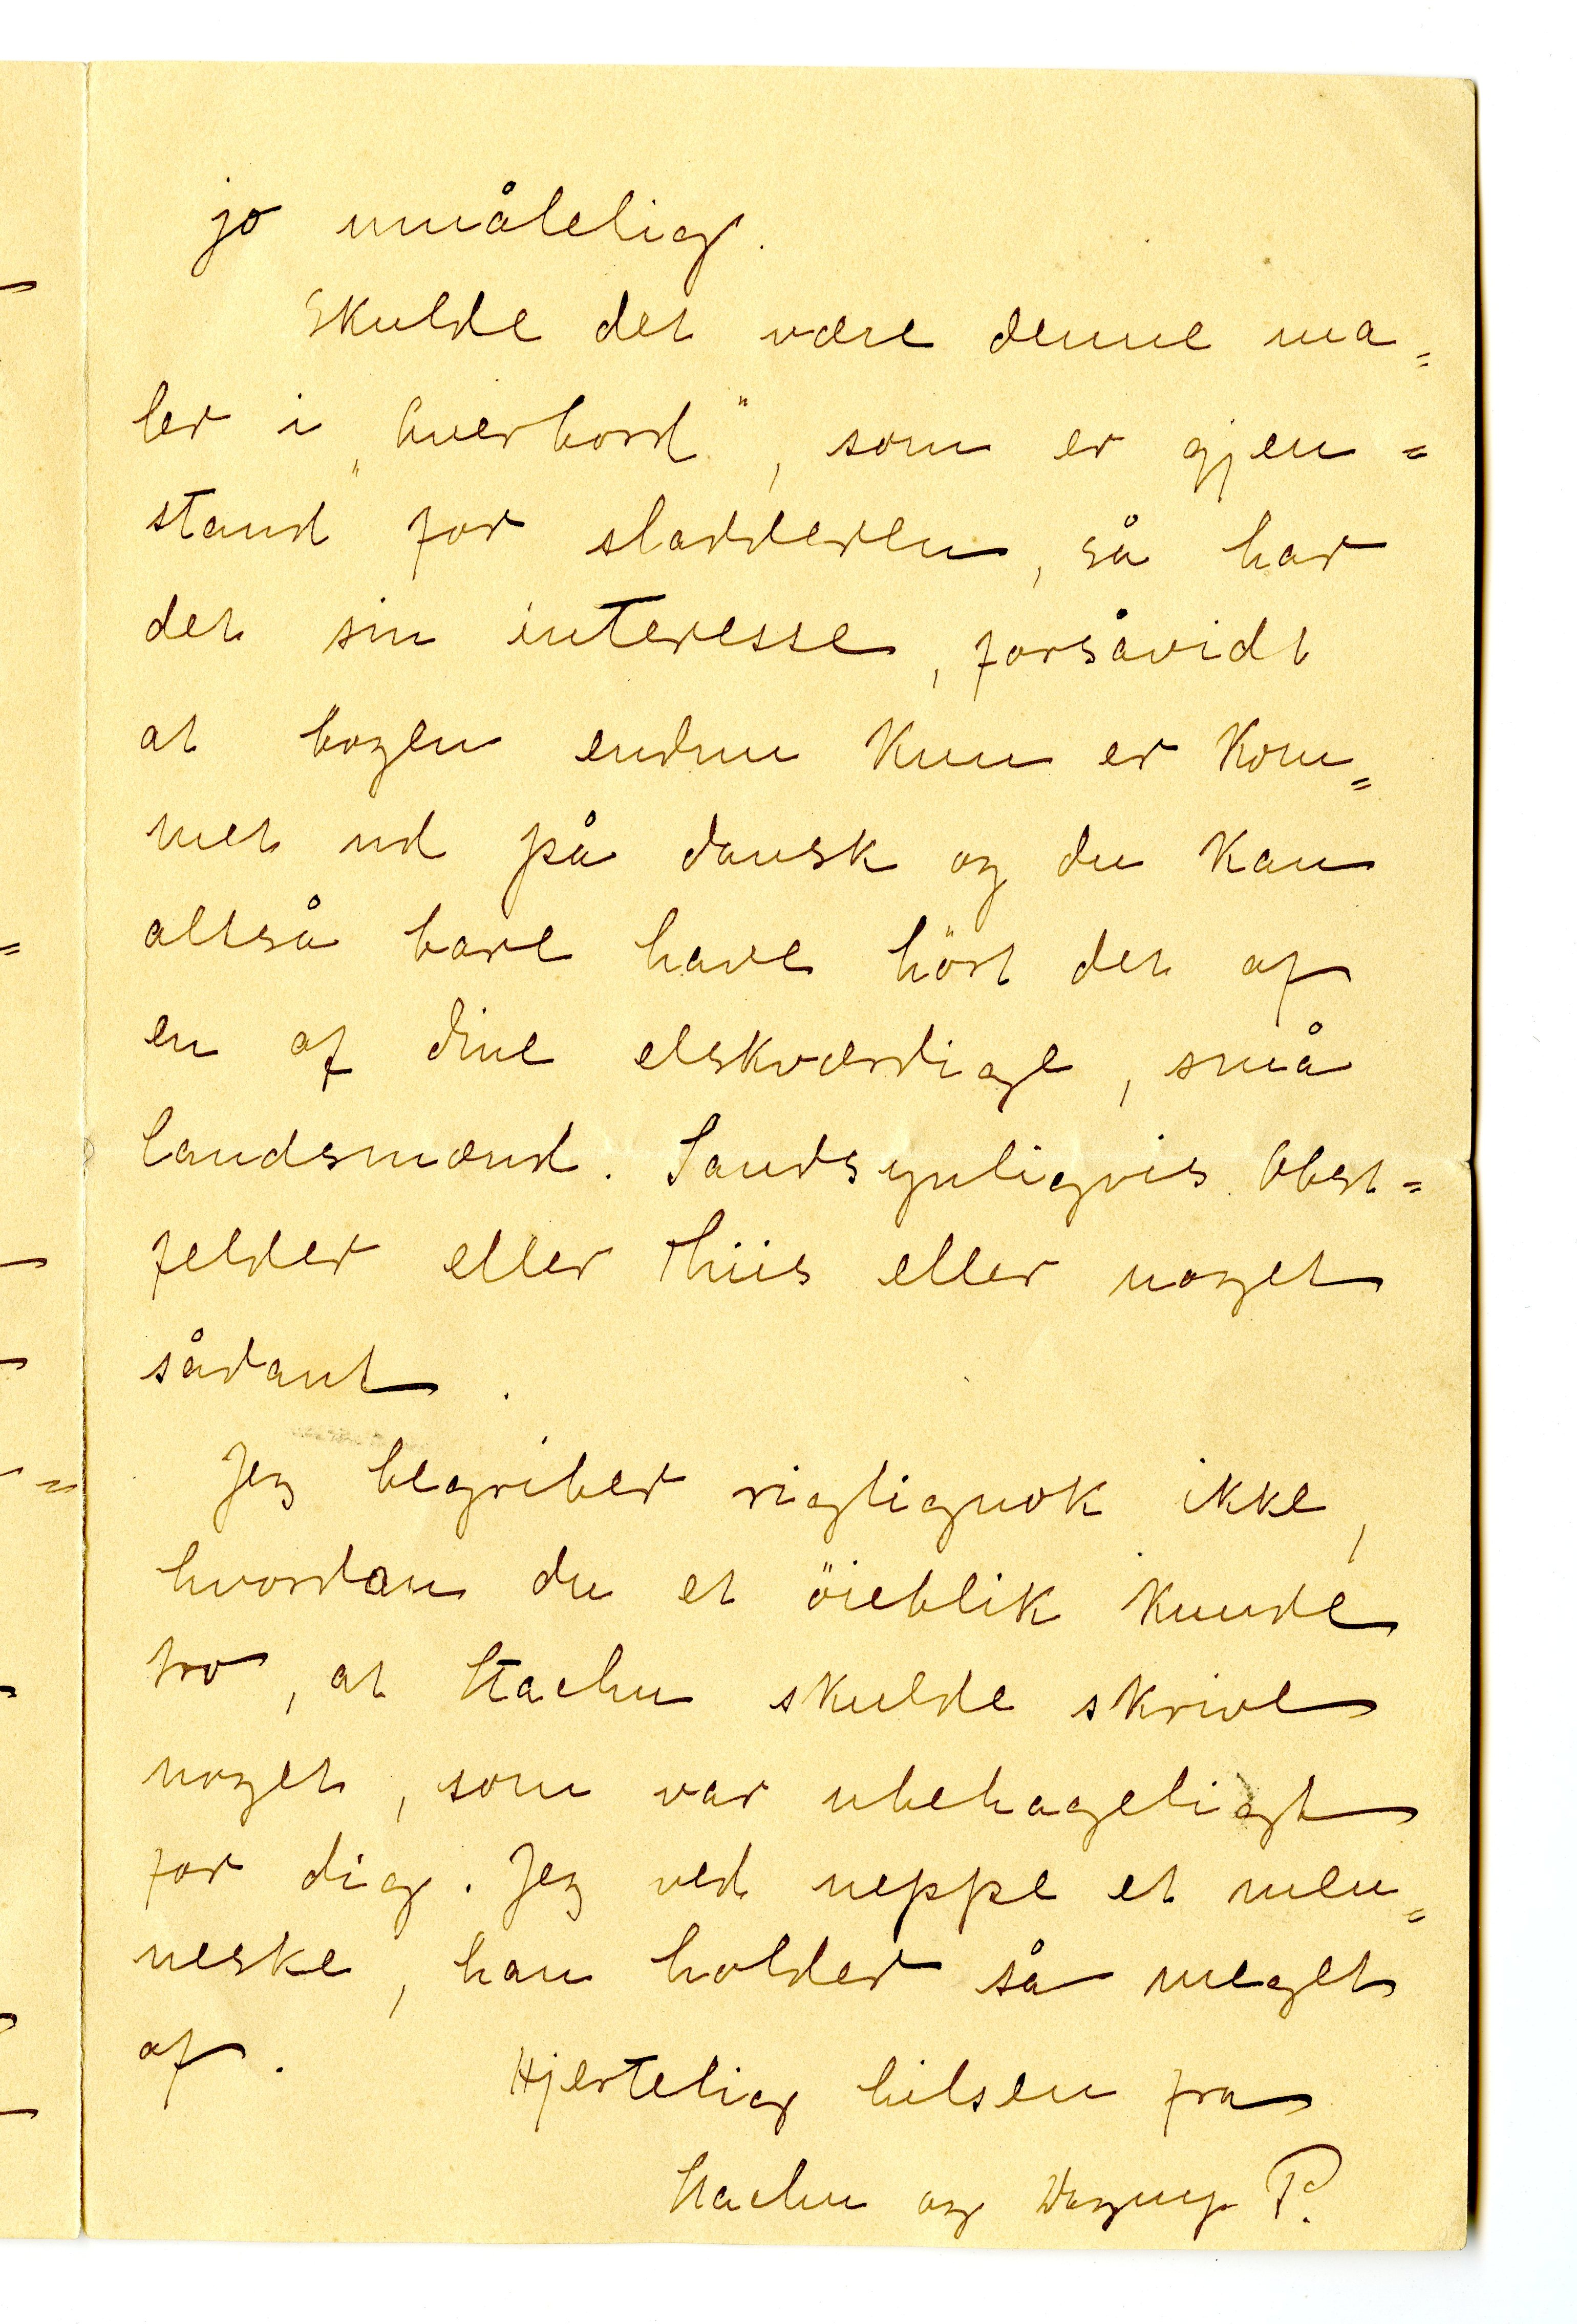 jo umålelig.
Skulde det være denne ma=
ler i „Overbord", som er gjen=
stand for sladderen, så har
det sin interesse, forsåvidt
at bogen endnu kun er kom=
met ud på dansk og du kan
altså bare have hört det af
en af dine elskværdige, små
landsmænd. Sandsynligvis Obst=
felder eller Thiis eller noget
sådant.
Jeg begriber rigtignok ikke,
hvordan du et öieblik kunde
tro, at Stachu skulde skrive
noget, som var ubehageligt
for dig. Jeg ved neppe et men=
neske, han holder så meget
af.
Hjertelig hilsen fra
Stachu og Dagny P.